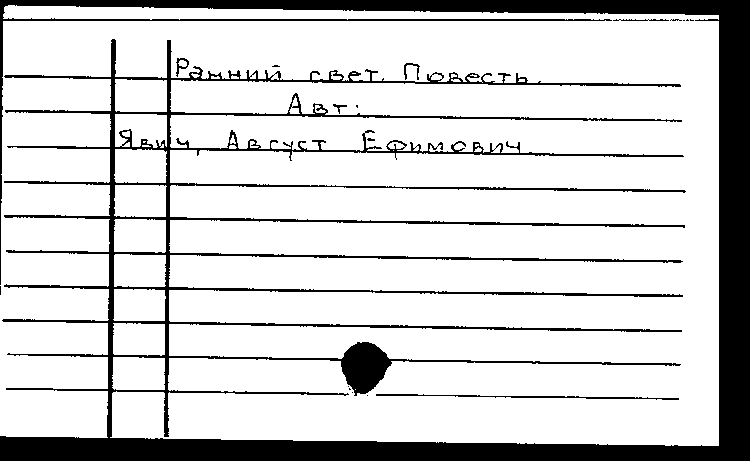 Ранний свет. Повесть.
Авт:
Явич, Август Ефимович